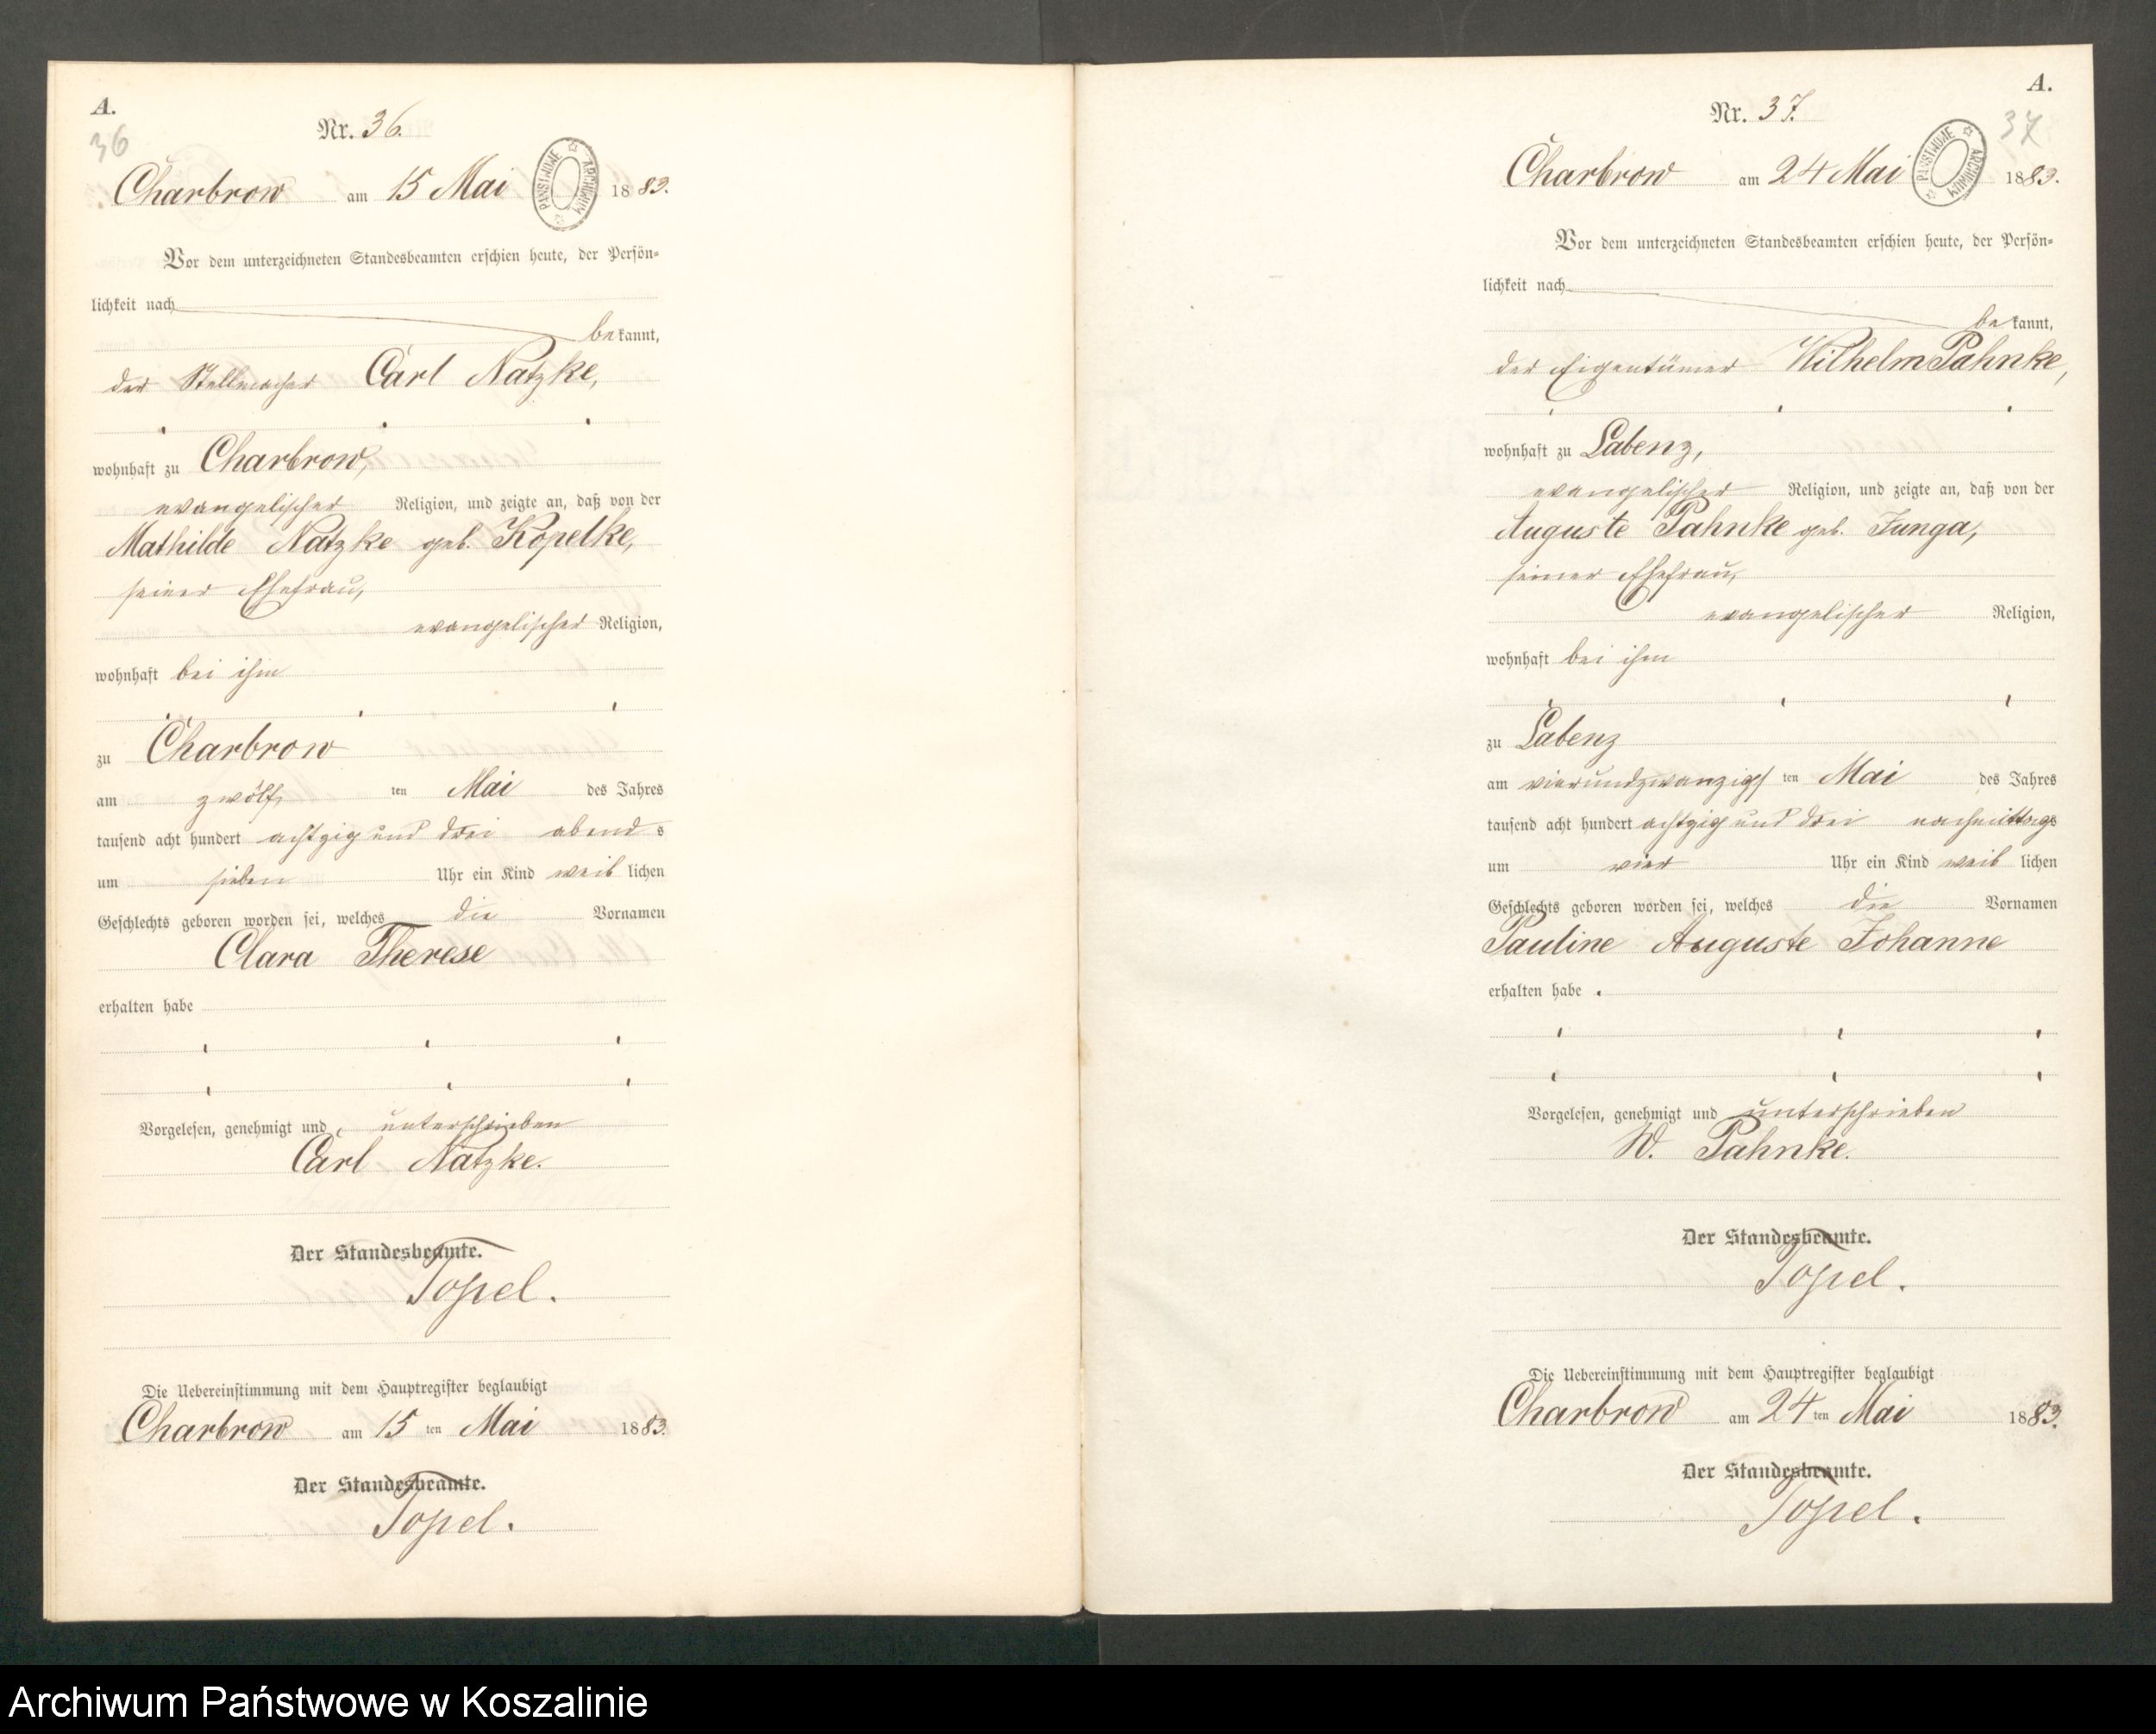 A.
36
Nr. 36.
Charbrow am 15 Mai 1883.
ARCHIWUM PAŃSTWOWE
Vor dem unterzeichneten Standesbeamten erschien heute, der Persön-
lichkeit nach
bekannt,
der Stellmacher Carl Natzke,
wohnhaft zu Charbrow,
evangelischer Religion, und zeigte an, daß von der
Mathilde Natzke geb. Kopelke,
seiner Ehefrau,
evangelischer Religion,
wohnhaft bei ihm
zu Charbrow
am zwölf ten Mai des Jahres
tausend acht hundert achtzig und drei abends
um sieben Uhr ein Kind weiblichen
Geschlechts geboren worden sei, welches die Vornamen
Clara Therese
erhalten habe
Vorgelesen, genehmigt und unterschrieben
Carl Natzke.
Der Standesbeamte.
Topel.
Die Uebereinstimmung mit dem Hauptregister beglaubigt
Charbrow am 15 ten Mai 1883.
Der Standesbeamte.
Topel.
A.
37
Nr. 37.
Charbrow am 24 Mai 1883.
ARCHIWUM PAŃSTWOWE
Vor dem unterzeichneten Standesbeamten erschien heute, der Persön-
lichkeit nach
bekannt,
der Eigentümer Wilhelm Pahnke,
wohnhaft zu Labenz,
evangelischer Religion, und zeigte an, daß von der
Auguste Pahnke geb. Junga,
seiner Ehefrau,
evangelischer Religion,
wohnhaft bei ihm
zu Labenz
am vierundzwanzigsten Mai des Jahres
tausend acht hundert achtzig und drei nachmittags
um vier Uhr ein Kind weiblichen
Geschlechts geboren worden sei, welches die Vornamen
Pauline Auguste Johanne
erhalten habe.
Vorgelesen, genehmigt und unterschrieben
W. Pahnke.
Der Standesbeamte.
Topel.
Die Uebereinstimmung mit dem Hauptregister beglaubigt
Charbrow am 24 ten Mai 1883.
Der Standesbeamte.
Topel.
Archiwum Państwowe w Koszalinie